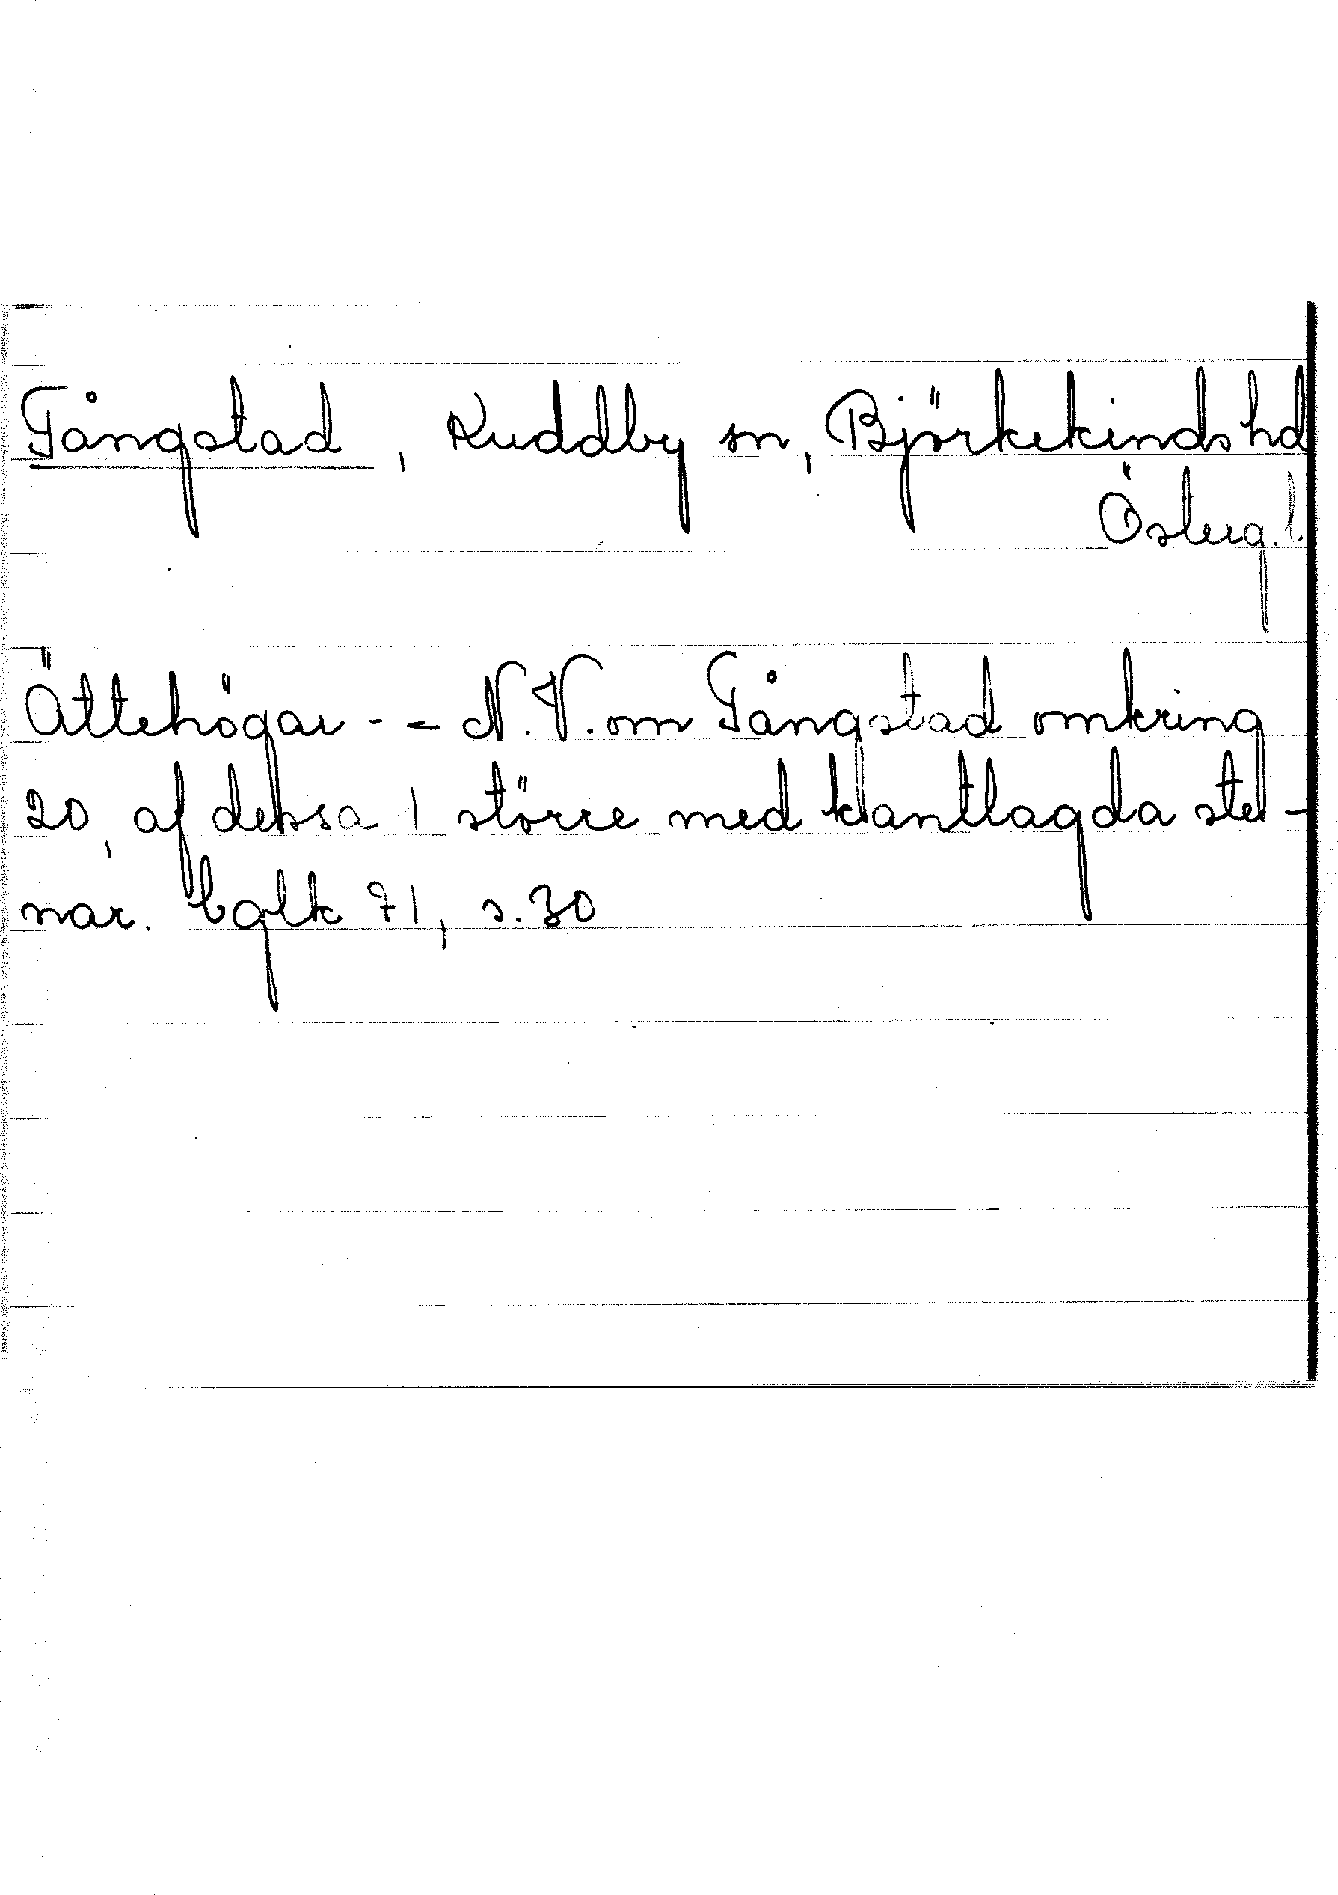 Tångstad, Kuddby sn, Björkekinds hd
Österg. l.
Ättehögar - - N.V. om Tångstad omkring
20, af dessa 1 större med kantlagda ste-
nar. Eglk 71, s. 30